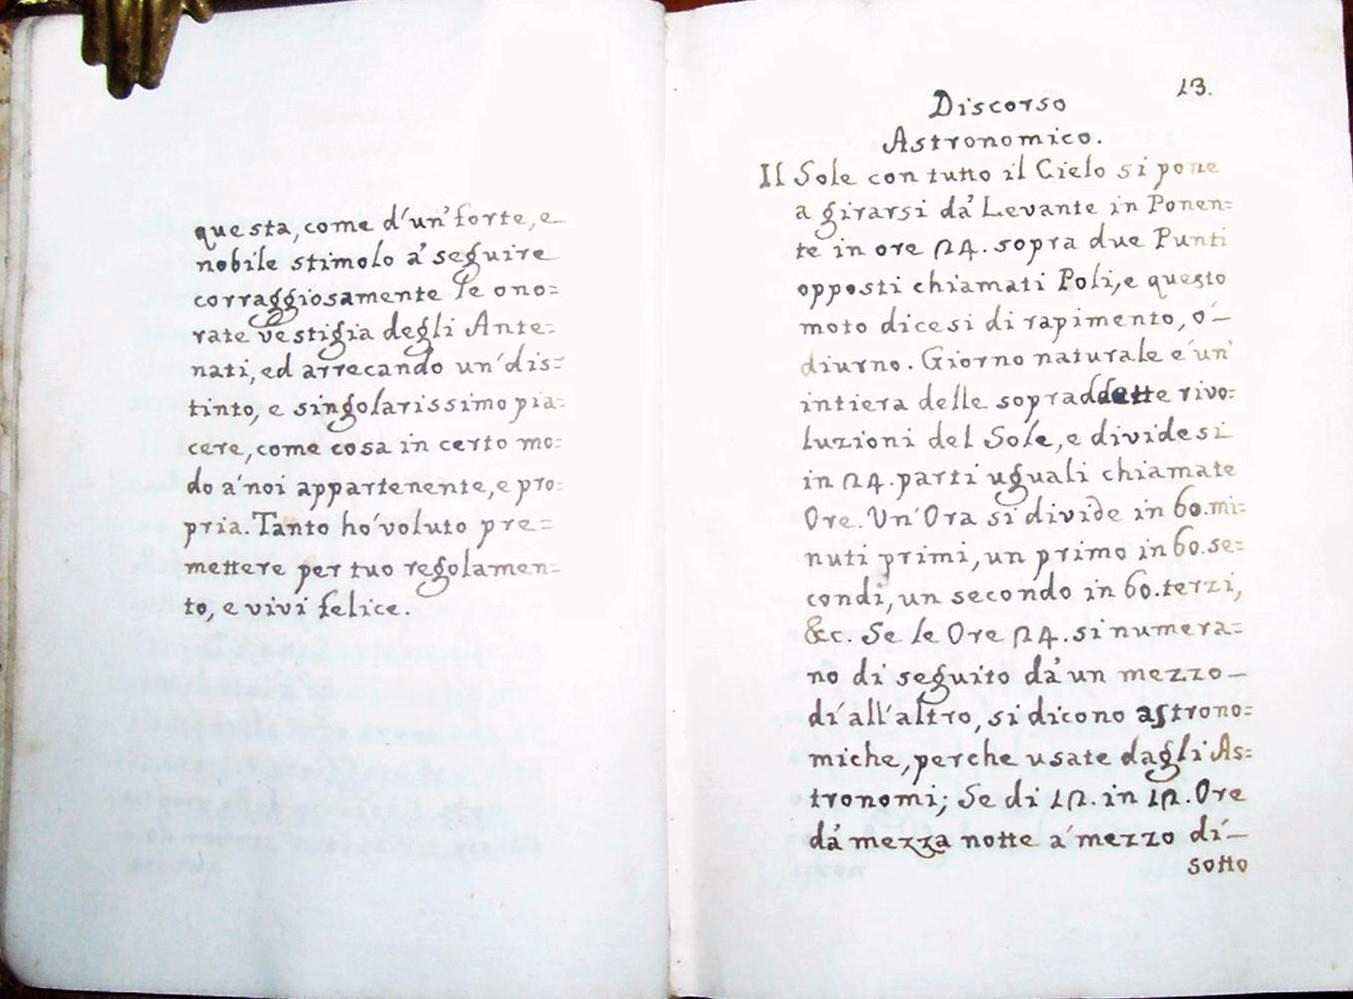 questa, come d'un' forte, e
nobile stimolo à seguire
corraggiosamente le ono=
rate vestigia degli Ante=
nati, ed arrecando un' dis=
tinto, e singolarissimo pia=
cere, come cosa in certo mo=
do a' noi appartenente, e pro=
pria. Tanto ho' voluto pre=
mettere per tuo regolamen=
to, e vivi felice.
13.
Discorso
Astronomico.
Il Sole con tutto il Cielo si pone
a girarsi dà Levante in Ponen=
te in ore 24. sopra due Punti
opposti chiamati Poli, e questo
moto dicesi di rapimento, o'—
diurno. Giorno naturale e' un'
intiera delle sopraddette rivo=
luzioni del Sole, e dividesi
in 24. parti uguali chiamate
Ore. Un' Ora si divide in 60. mi=
nuti primi, un primo in 60. se=
condi, un secondo in 60. terzi,
&c. Se le Ore 24. si numera=
no di seguito dà un mezzo—
dí all' altro, si dicono astrono=
miche, perche usate dagli As=
tronomi; Se di 12. in 12. Ore
dà mezza notte a' mezzo dí—
sotto